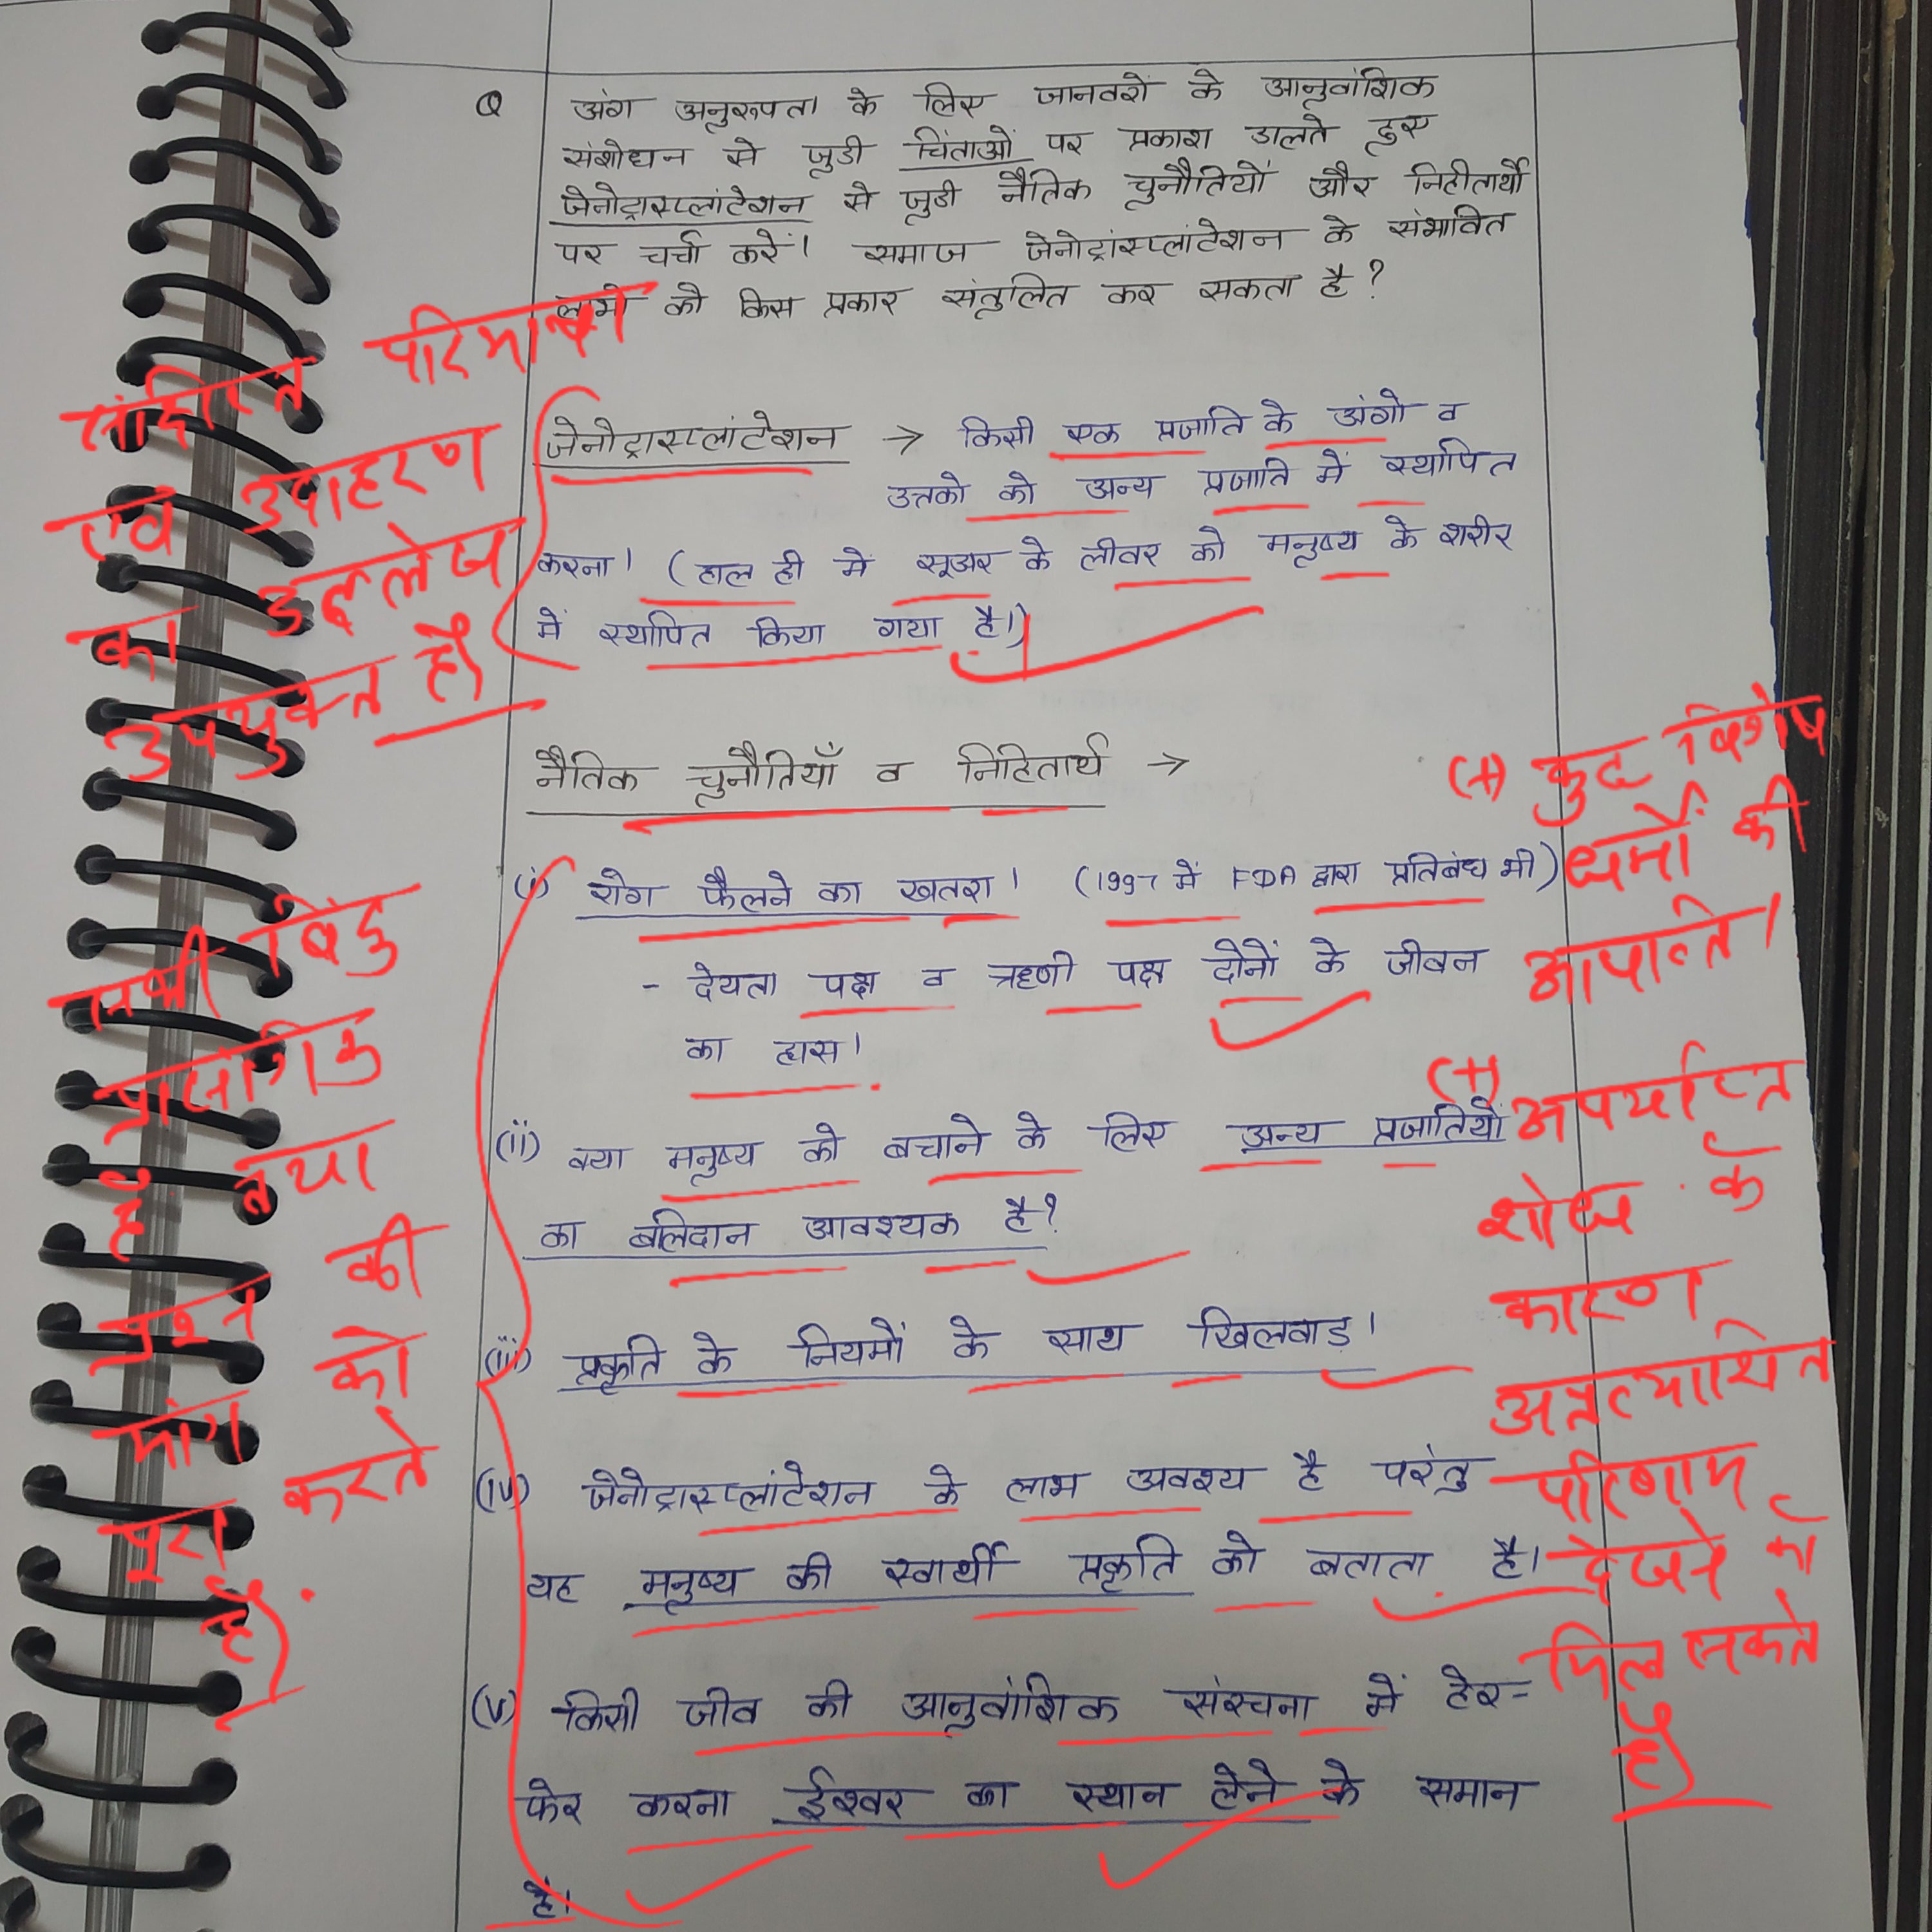 Q अंग अनुरूपता के लिए जानवरों के आनुवांशिक
संशोधन से जुडी चिंताओं पर प्रकाश डालते हुए
जेनोट्रास्प्लांटेशन से जुडी नैतिक चुनौतियों और निहीतार्थों
पर चर्चा करें। समाज जेनोट्रांस्प्लांटेशन के संभावित
लाभो को किस प्रकार संतुलित कर सकता है?
संक्षिप्त परिभाषा
एवं उदाहरण
का उल्लेख
उपयुक्त है।
जेनोट्रास्प्लांटेशन → किसी एक प्रजाति के अंगो व
उत्तको को अन्य प्रजाति में स्थापित
करना। (हाल ही मे सूअर के लीवर को मनुष्य के शरीर
में स्थापित किया गया है।)
नैतिक चुनौतियाँ व निहितार्थ →
(i) रोग फैलने का खतरा। (1997 में FDA द्वारा प्रतिबंध भी)
- देयता पक्ष व ऋणी पक्ष दोनों के जीवन
का ह्रास।
(ii) क्या मनुष्य को बचाने के लिए अन्य प्रजातियों
का बलिदान आवश्यक है?
(iii) प्रकृति के नियमों के साथ खिलवाड़।
(iv) जेनोट्रास्प्लांटेशन के लाभ अवश्य है परंतु
यह मनुष्य की स्वार्थी प्रकृति को बताता है।
(v) किसी जीव की आनुवांशिक संरचना में हेर-
फेर करना ईश्वर का स्थान लेने के समान
है।
सभी बिंदु
प्रासंगिक
है तथा
प्रश्न की
मांग को
पूरा करते
है।
(+) कुछ विशेष
धर्मों की
आपत्ति।
(+)
अपर्याप्त
शोध के
कारण
अप्रत्याशित
परिणाम
देखने को
मिल सकते
है।